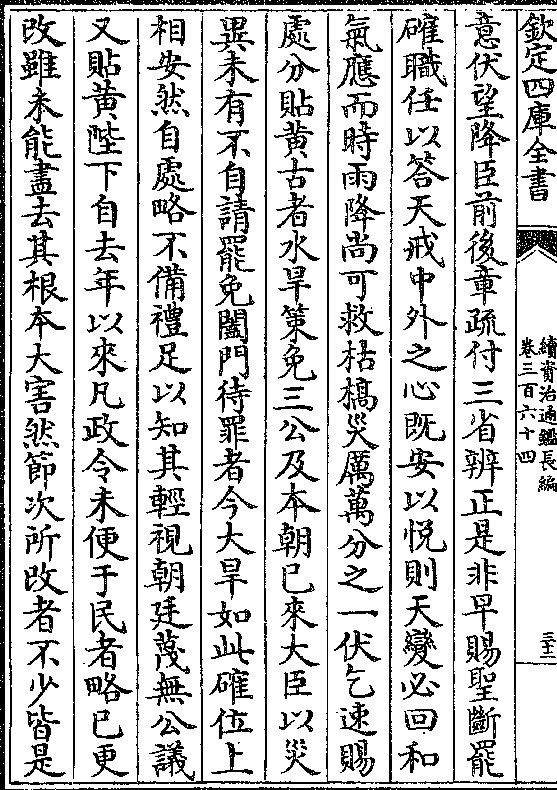 欽定四庫全書
續資治通鑑長編
卷三百六十四
三十二
意伏望降臣前後章疏付三省辨正是非早賜聖斷罷
確職任以答天戒中外之心既安以悦則天變必回和
氣應而時雨降尚可救枯槁災厲萬分之一伏乞速賜
處分貼黄古者水旱策免三公及本朝已來大臣以災
異未有不自請罷免闔門待罪者今大旱如此確位上
相安然自處略不備禮足以知其輕視朝廷蔑無公議
又貼黄陛下自去年以來凡政令未便于民者略已更
改雖未能盡去其根本大害然節次所改者不少皆是